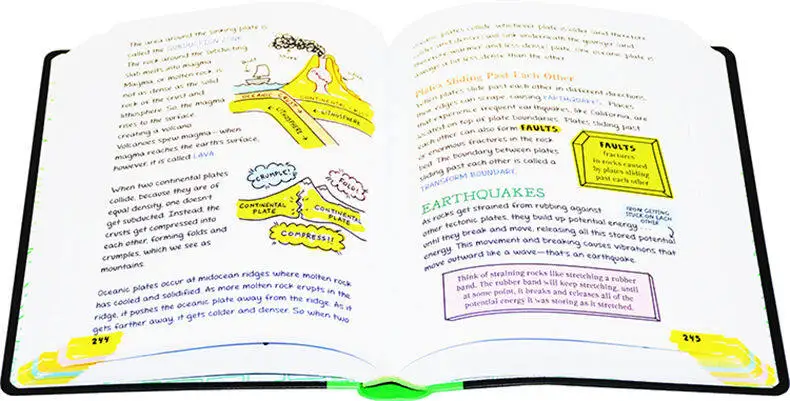 The area around the sinking plate is
called the SUBDUCTION ZONE.
The rock around the subducting
slab melts into magma.
Magma, or molten rock, is
not as dense as the solid
rock of the crust and
lithosphere. So, the magma
rises to the surface,
creating a volcano.
Volcanoes spew magma—when
magma reaches the earth's surface,
however, it is called LAVA.
OCEANIC CRUST
CONTINENTAL CRUST
←LITHOSPHERE→
←LITHOSPHERE
When two continental plates
collide, because they are of
equal density, one doesn't
get subducted. Instead, the
crusts get compressed into
each other, forming folds and
crumples, which we see as
mountains.
CRUMPLE!
FOLD!
CONTINENTAL
PLATE
CONTINENTAL
PLATE
COMPRESS!!
Oceanic plates occur at midocean ridges where molten rock
has cooled and solidified. As more molten rock erupts in the
ridge, it pushes the oceanic plate away from the ridge. As it
gets farther away, it gets colder and denser. So when two
244
oceanic plates collide, whichever plate is older (and therefore
colder and denser) will sink underneath the younger (and
therefore warmer and less dense) plate. One oceanic plate is
always a bit less dense than the other.
Plates Sliding Past Each Other
When plates slide past each other in different directions,
their edges can scrape, causing EARTHQUAKES. Places
that experience frequent earthquakes, like California, are
located on top of plate boundaries. Plates sliding past
each other can also form FAULTS,
or enormous fractures in the rock
bed. The boundary between plates
sliding past each other is called a
TRANSFORM BOUNDARY.
FAULTS
fractures
in rocks caused
by plates sliding
past each other
EARTHQUAKES
FROM GETTING
STUCK ON EACH
OTHER
As rocks get strained from rubbing against
other tectonic plates, they build up potential energy . . .
until they break and move, releasing all this stored potential
energy. This movement and breaking causes vibrations that
move outward like a wave—that's an earthquake.
Think of straining rocks like stretching a rubber
band. The rubber band will keep stretching, until
at some point, it breaks and releases all of the
potential energy it was storing as it stretched.
245